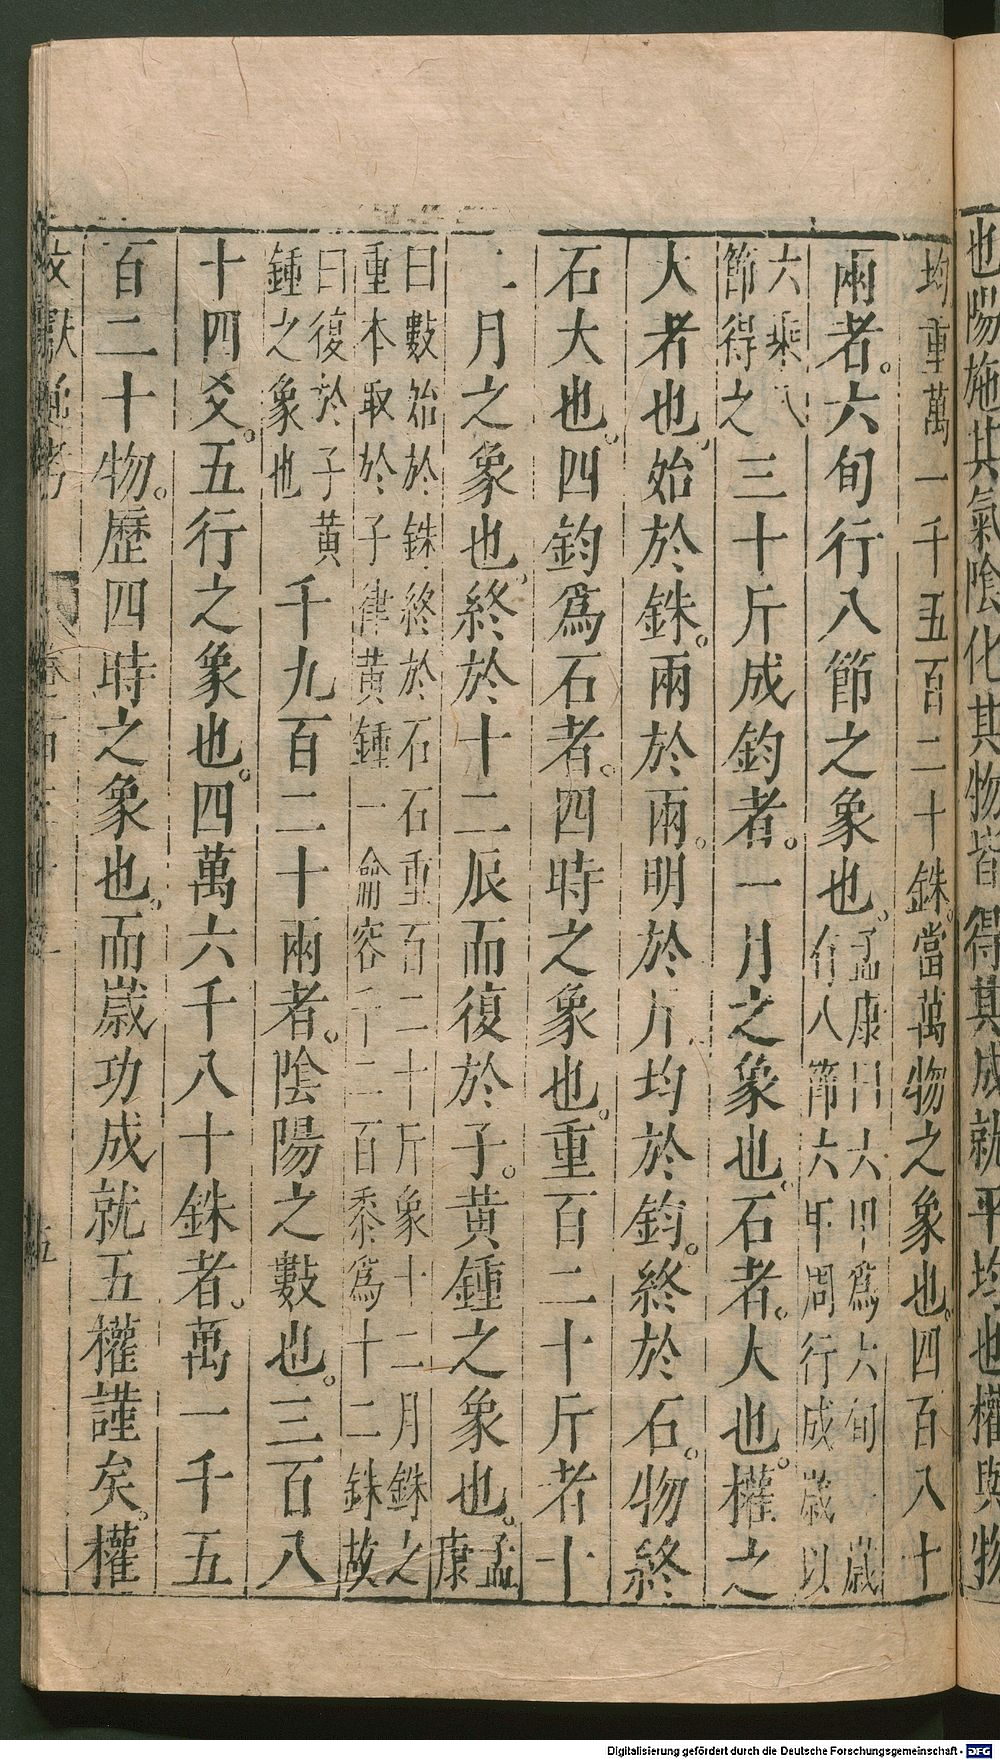 也陽施其氣陰化其物皆得其成就平均也權與物
均重萬一千五百二十銖當萬物之象也四百八十
兩者六旬行八節之象也
孟康曰六甲爲六旬一歲
有八節六甲周行成歲以
六乘八
節得之
三十斤成鈞者一月之象也石者大也權之
大者也始於銖兩於兩明於斤均於鈞終於石物終
石大也四鈞爲石者四時之象也重百二十斤者十
二月之象也終於十二辰而復於子黃鍾之象也
孟
康
曰數始於銖終於石石重百二十斤象十二月銖之
重本取於子律黃鍾一龠容千二百黍爲十二銖故
曰復於子黃
鍾之象也
千九百二十兩者陰陽之數也三百八
十四爻五行之象也四萬六千八十銖者萬一千五
百二十物歷四時之象也而歲功成就五權謹矣權
五
Digitalisierung gefördert durch die Deutsche Forschungsgemeinschaft - DFG